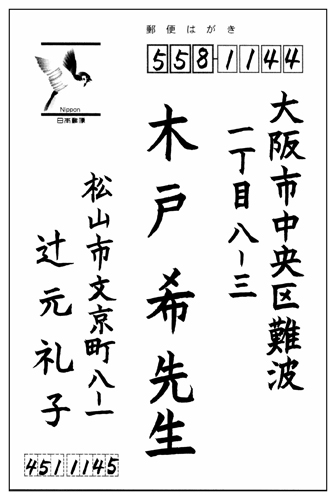 郵便はがき
558-1144
大阪市中央区難波
一丁目八-三
木戸希先生
Nippon
日本郵便
松山市文京町八-一
辻元礼子
451 1145